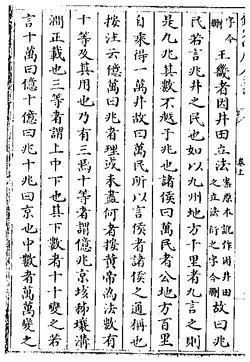 字今刪王畿者因井田立法案原本訛作因井田之立法衍之字今刪故曰兆
民若言兆井之民也如以九州地方千里者九言之則
是九兆其數不越于兆也諸侯曰萬民者公地方百里
自乘得一萬井故曰萬民所以言侯者諸侯之通稱也
按注云億萬曰兆者理或未盡何者按黃帝為法數有
十等及其用也乃有三焉十等者謂億兆京垓秭壤溝
澗正載也三等者謂上中下也其下數者十十變之若
言十萬曰億十億曰兆十兆曰京也中數者萬萬變之
卷上